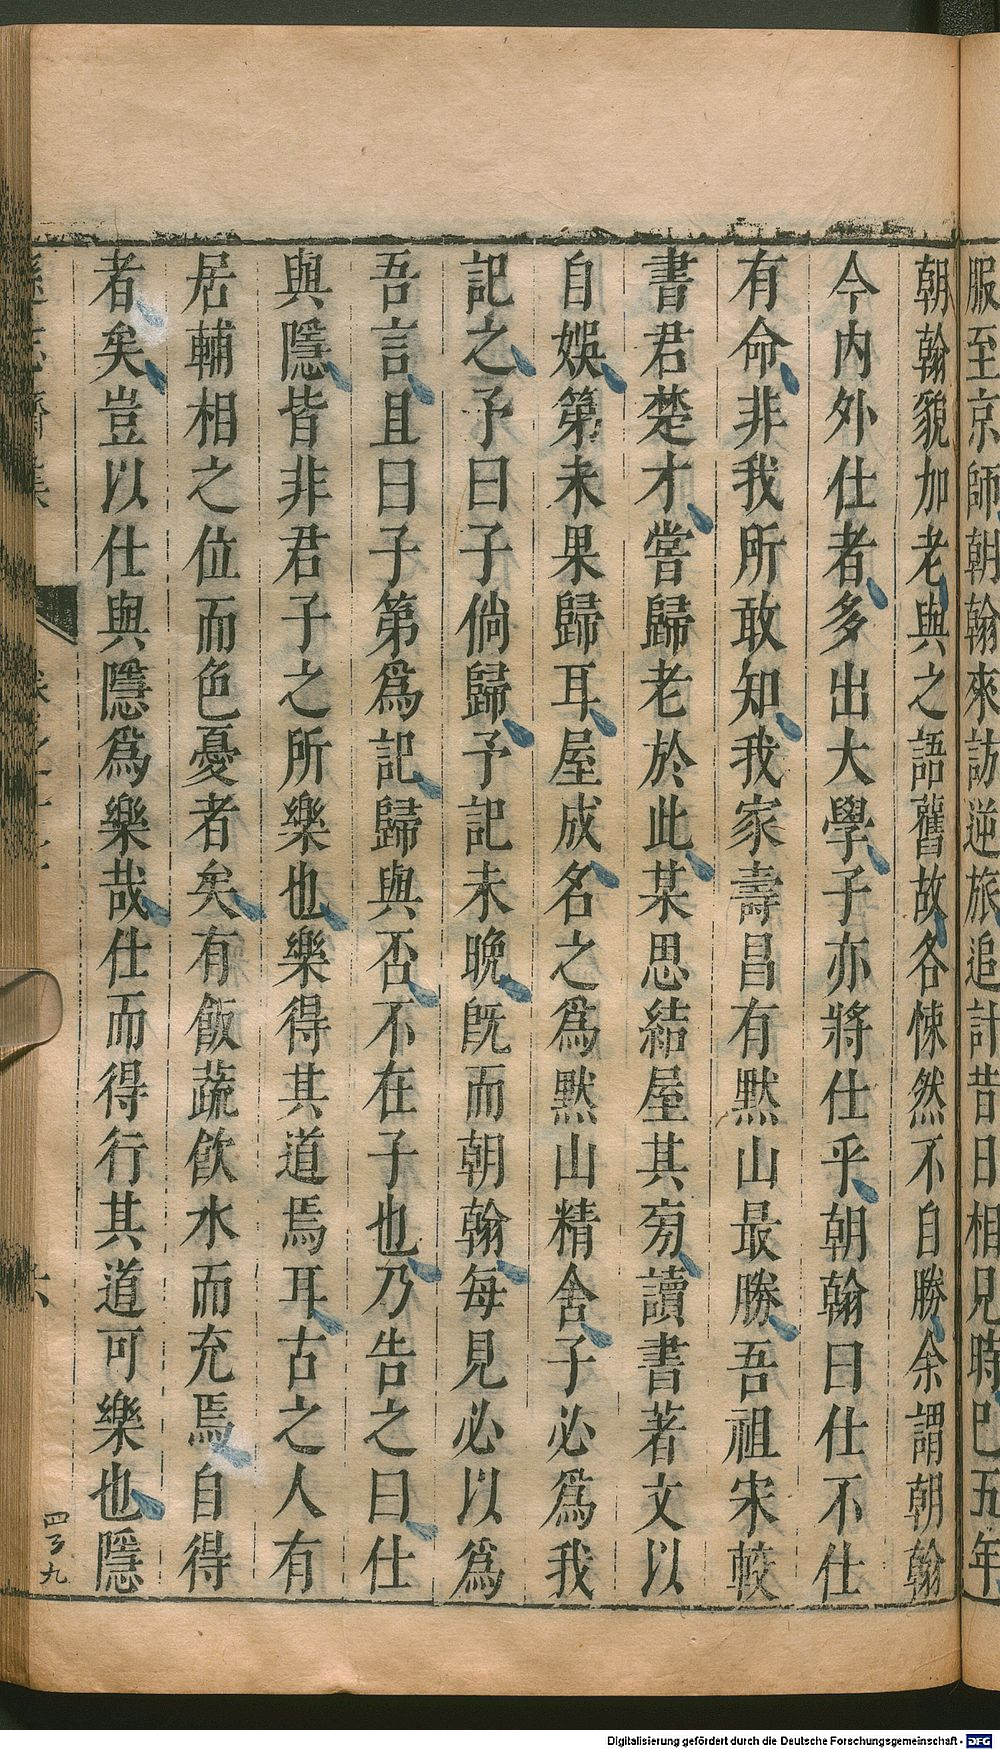 服至京師朝翰來訪逆旅追計昔日相見時已五年
朝翰貌加老與之語舊故各悚然不自勝余謂朝翰
今內外仕者多出大學子亦將仕乎朝翰曰仕不仕
有命非我所敢知我家壽昌有黙山最勝吾祖宋較
書君楚才嘗歸老於此某思結屋其旁讀書著文以
自娛第未果歸耳屋成名之爲黙山精舍子必爲我
記之予曰子倘歸予記未晚旣而朝翰每見必以爲
吾言且曰子第爲記歸與否不在子也乃告之曰仕
與隱皆非君子之所樂也樂得其道焉耳古之人有
居輔相之位而色憂者矣有飯蔬飮水而充焉自得
者矣豈以仕與隱爲樂哉仕而得行其道可樂也隱
四百九
Digitalisierung gefördert durch die Deutsche Forschungsgemeinschaft - DFG